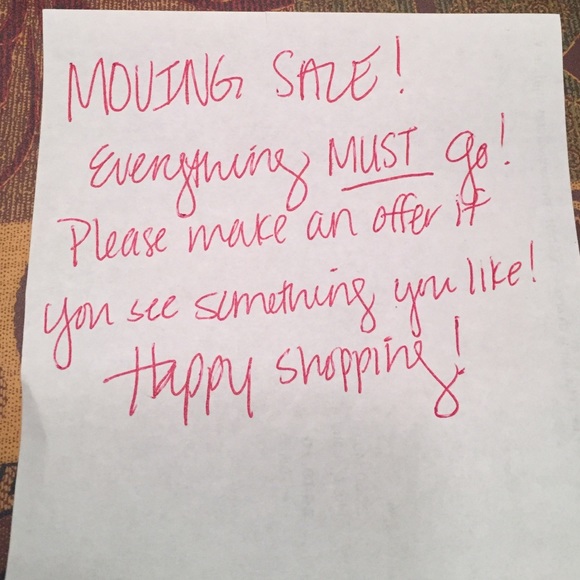 MOVING SALE!
Everything MUST go!
Please make an offer if
you see something you like!
Happy shopping!